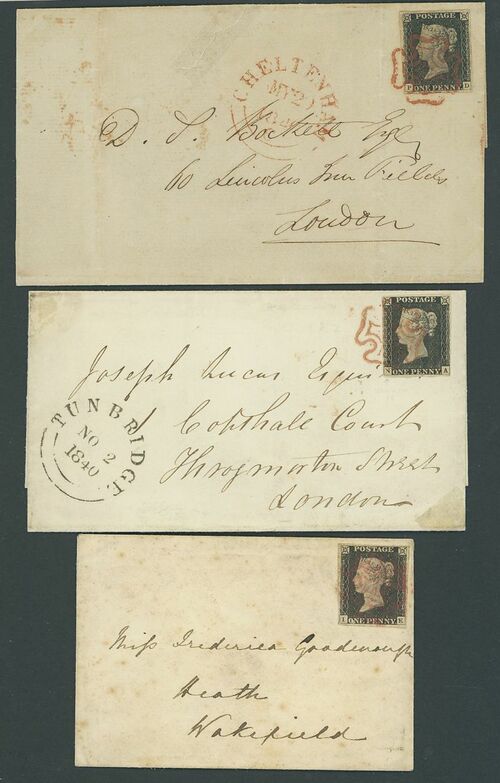 POSTAGE
ONE PENNY
D
CHELTENHAM
MY 2
D. S. Bockett Esqr
60 Lincolns Inn Fields
London
POSTAGE
N ONE PENNY A
Joseph Lucas Esqre
1 Copthall Court
Throgmorton Street
London
TUNBRIDGE
NO 2
1840
POSTAGE
I ONE PENNY K
Miss Frederica Goodenough
Heath
Wakefield